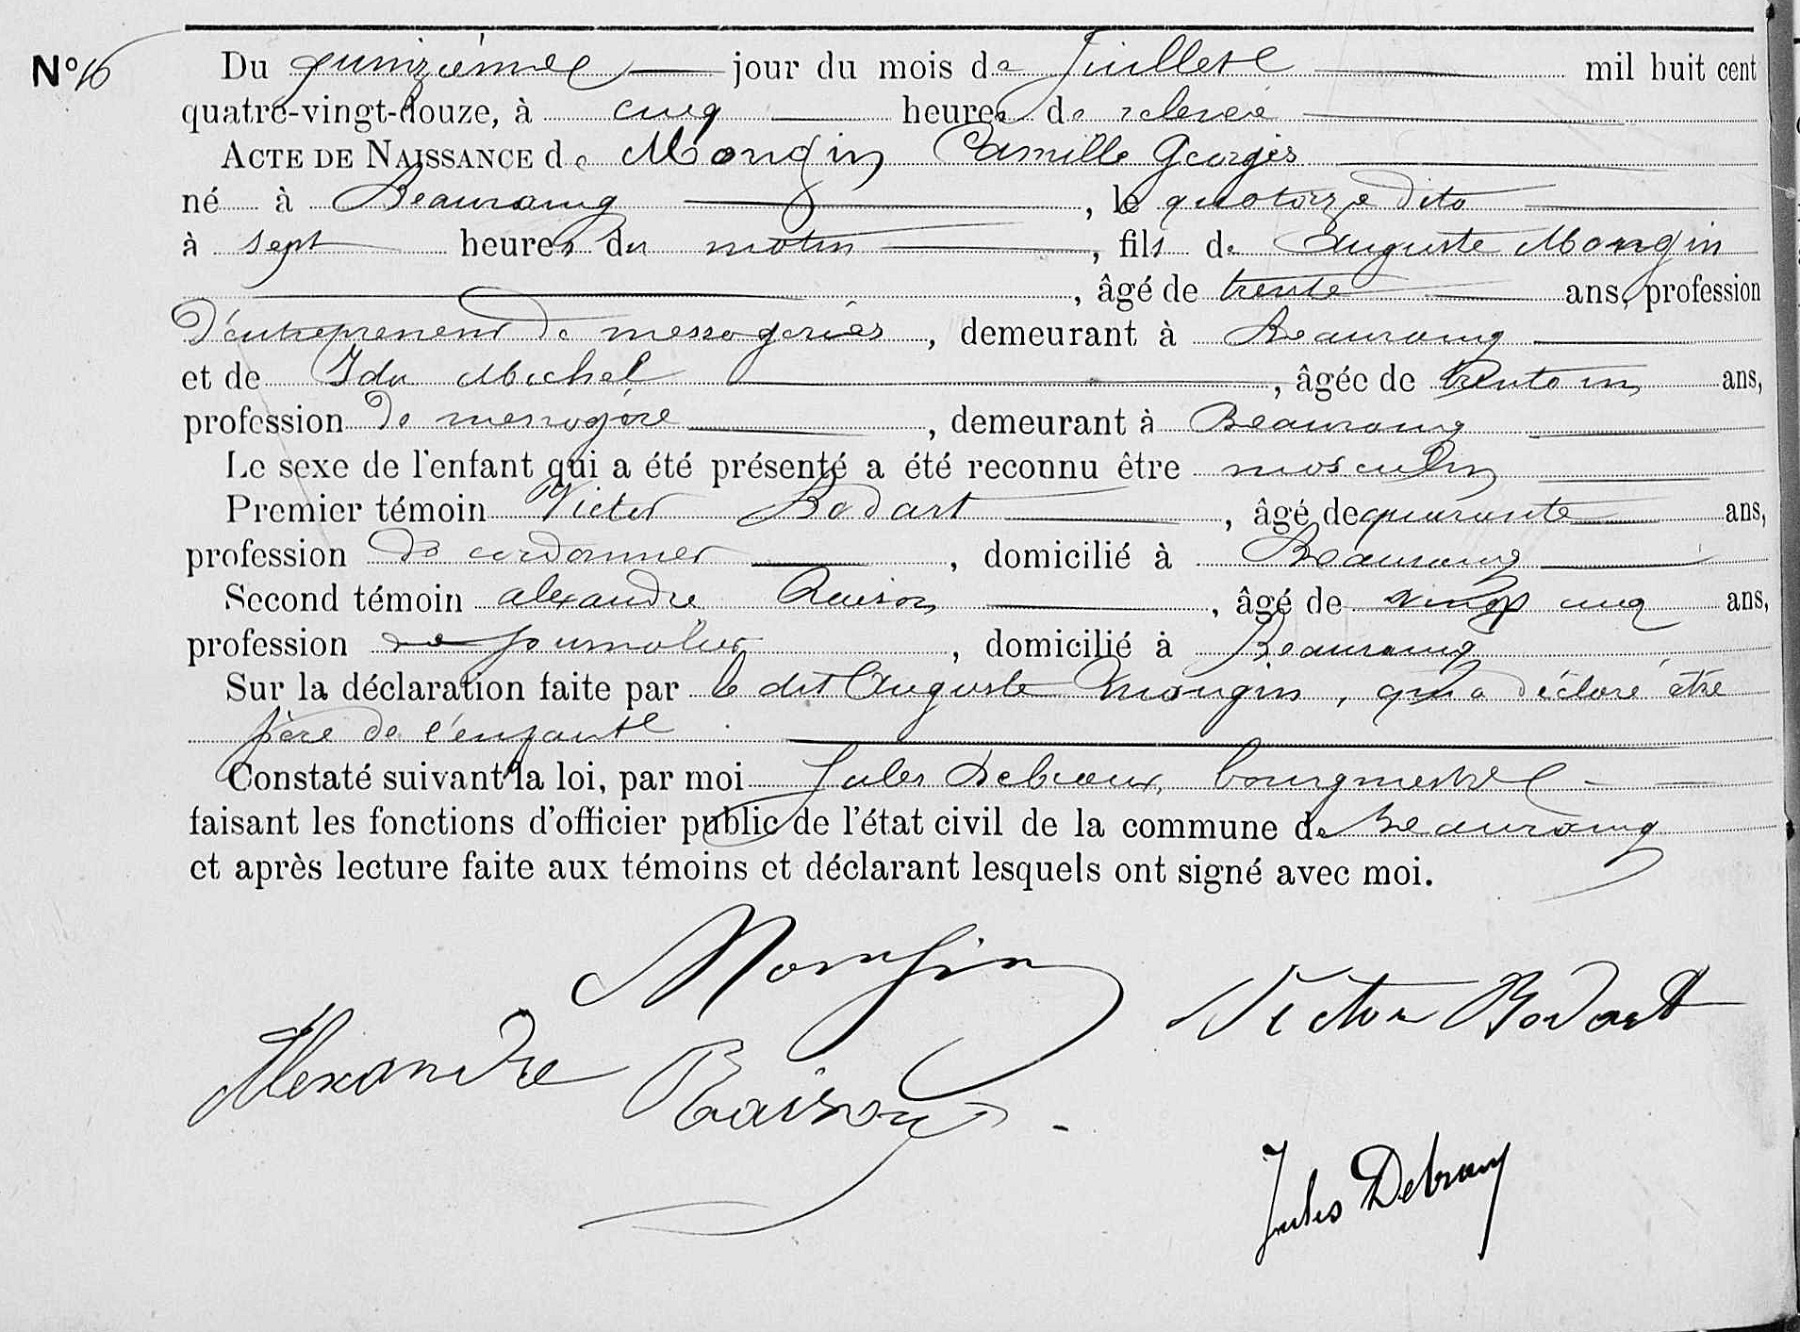 N° 16 Du quinzième jour du mois de Juillet mil huit cent
quatre-vingt-douze, à cinq heures de relevée
ACTE DE NAISSANCE de Mongin Camille Georges
né à Beauraing, le quatorze dito
à sept heures du matin, fils de Auguste Mongin
, âgé de trente ans, profession
d'entrepreneur de messageries, demeurant à Beauraing
et de Ida Michel, âgée de trente un ans,
profession de messagère, demeurant à Beauraing
Le sexe de l'enfant qui a été présenté a été reconnu être masculin
Premier témoin Victor Bodart, âgé de quarante ans,
profession de cordonnier, domicilié à Beauraing
Second témoin alexandre Raison, âgé de vingt cinq ans,
profession de journalier, domicilié à Beauraing
Sur la déclaration faite par le dit Auguste Mongin, qui a déclaré être
père de l'enfant
Constaté suivant la loi, par moi Jules Debroux, bourgmestre
faisant les fonctions d'officier public de l'état civil de la commune de Beauraing
et après lecture faite aux témoins et déclarant lesquels ont signé avec moi.
Mongin
Victor Bodart
Alexandre Raison
Jules Debroux